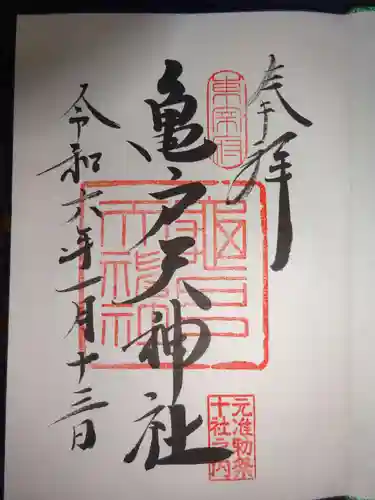 奉拝
東宰府
亀戸天神社
元准勅祭
十社之内
令和六年一月十三日